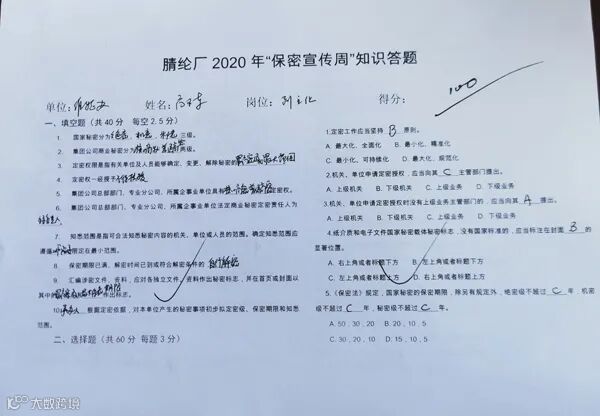 腈纶厂 2020 年“保密宣传周”知识答题
单位: 姓名: 岗位: 得分: 100
一、填空题（共 40 分 每空 2.5 分）
1. 国家秘密分为绝密、机密、秘密三级。
2. 集团公司商业秘密分为 两级。
3. 定密权限是指有关单位及人员能够确定、变更、解除秘密的
4. 定密权一经授予
5. 集团公司总部部门、专业分公司、所属企事业单位具有 定密权。
6. 集团公司总部部门、专业分公司、所属企事业单位法定商业秘密定密责任人为
7. 知悉范围是指可合法知悉秘密内容的机关、单位或人员的范围。确定知悉范围应
遵循 限定在最小范围。
8. 保密期限已满、解密时间已到或符合解密条件的 自行解密
9. 汇编涉密文件、资料，应对各独立文件、资料作出秘密标志，并在首页或封面以
其中的 作出标志。
10. 根据定密依据，对本单位产生的秘密事项初步拟定密级、保密期限和知悉
范围。
二、选择题（共 60 分 每题 3 分）
1.定密工作应当坚持 B 原则。
A. 最大化、全面化 B. 最小化、精准化
C. 最小化、可持续化 D. 最大化、规范化
2.机关、单位申请定密授权，应当向其 C 主管部门提出。
A. 上级机关 B. 下级机关 C. 上级业务 D. 下级业务
3.机关、单位申请定密授权时没有上级业务主管部门的，应当向其 A 提出。
A. 上级机关 B. 下级机关 C. 上级业务 D. 下级业务
4.纸介质和电子文件国家秘密载体秘密标志，没有国家标准的，应当标注在封面 B 的
显著位置。
A. 右上角或者标题下方 B. 左上角或者标题下方
C. 左上角或者标题上方 D. 右上角或者标题上方
5.《保密法》规定，国家秘密的保密期限，除另有规定外，绝密级不超过 C 年，机密
级不超过 C 年，秘密级不超过 C 年。
A. 50, 30, 20 B. 30, 20, 15
C. 30, 20, 10 D. 15, 10, 5
大数跨境